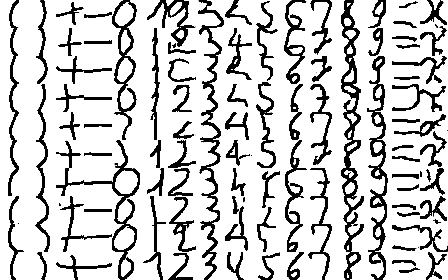 ( ) + - 0 1 2 3 4 5 6 7 8 9 = x
( ) + - 0 1 2 3 4 5 6 7 8 9 = x
( ) + - 0 1 2 3 4 5 6 7 8 9 = x
( ) + - 0 1 2 3 4 5 6 7 8 9 = x
( ) + - 1 2 3 4 6 7 8 9 = x
( ) + - 1 2 3 4 5 6 7 8 9 = x
( ) + - 0 1 2 3 4 6 7 8 9 = x
( ) + - 0 1 2 3 6 7 8 9 = x
( ) + - 0 1 2 3 4 5 6 7 8 9 = x
( ) + - 0 1 2 3 4 5 6 7 8 9 = x